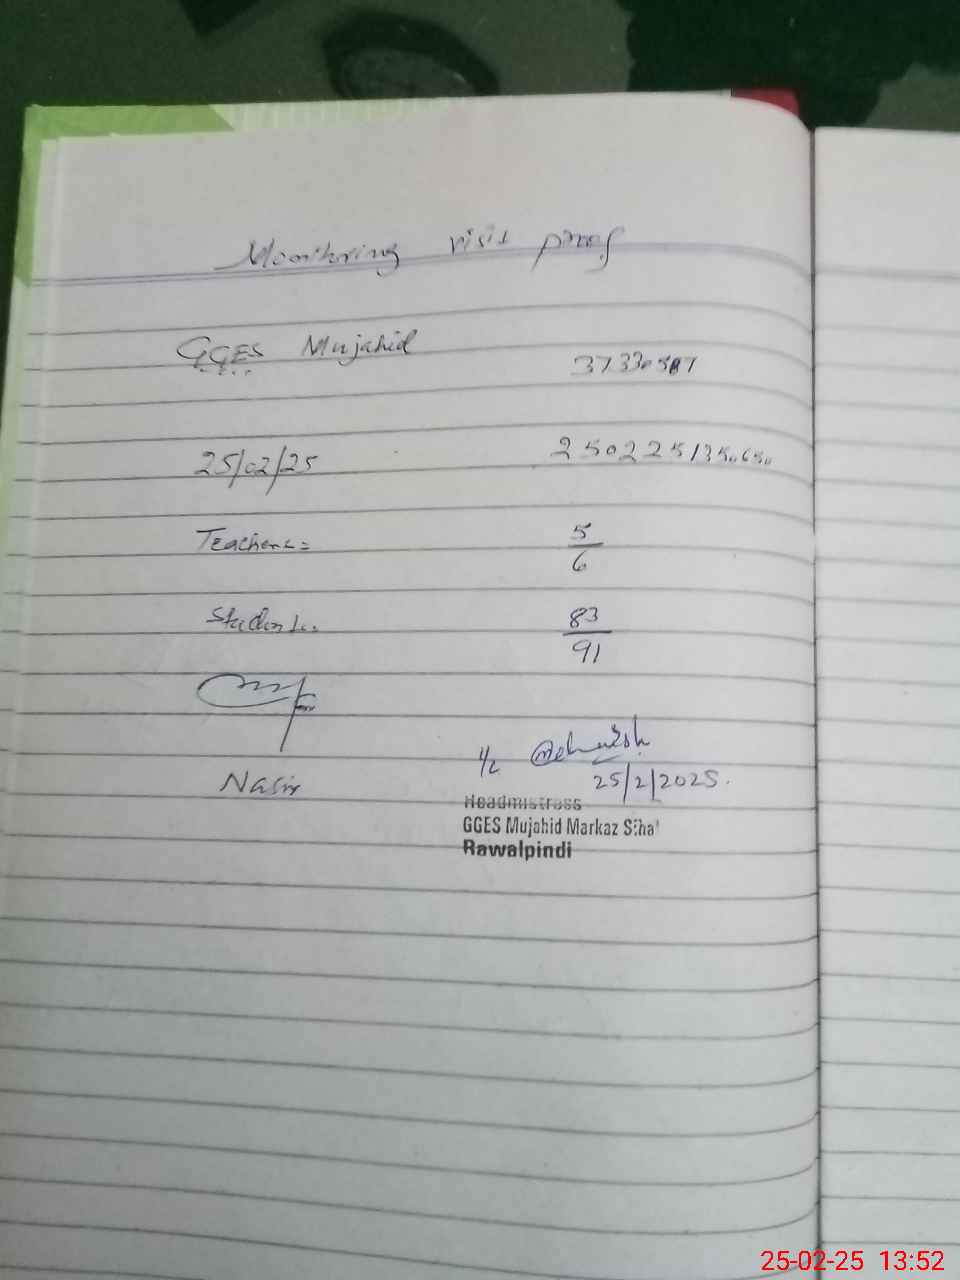 Monitoring visit proof
GGES Mujahid
37330587
25/02/25
2502251350650
Teachers=
5
6
Students.
83
91
Nasir
1/c Mehwish
25/2/2025.
Headmistress
GGES Mujahid Markaz Sihal
Rawalpindi
25-02-25 13:52